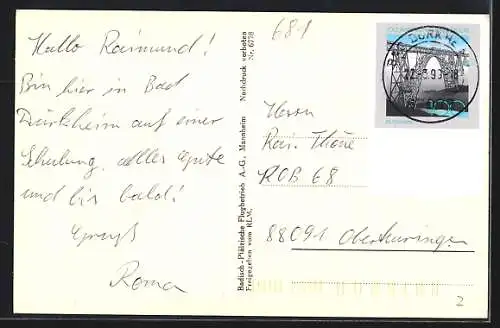 Hallo Raimund!
Bin hier in Bad
Dürkheim auf einer
Schulung, alles Gute
und bis bald!
Gruß
Roma
Badisch-Pfälzische Flugbetrieb A.-G., Mannheim Nachdruck verboten
Freigegeben vom RLM. Nr. 6738
681
DÜRKHEIM
100
Herrn
Rai.
ROB 68
88091
2